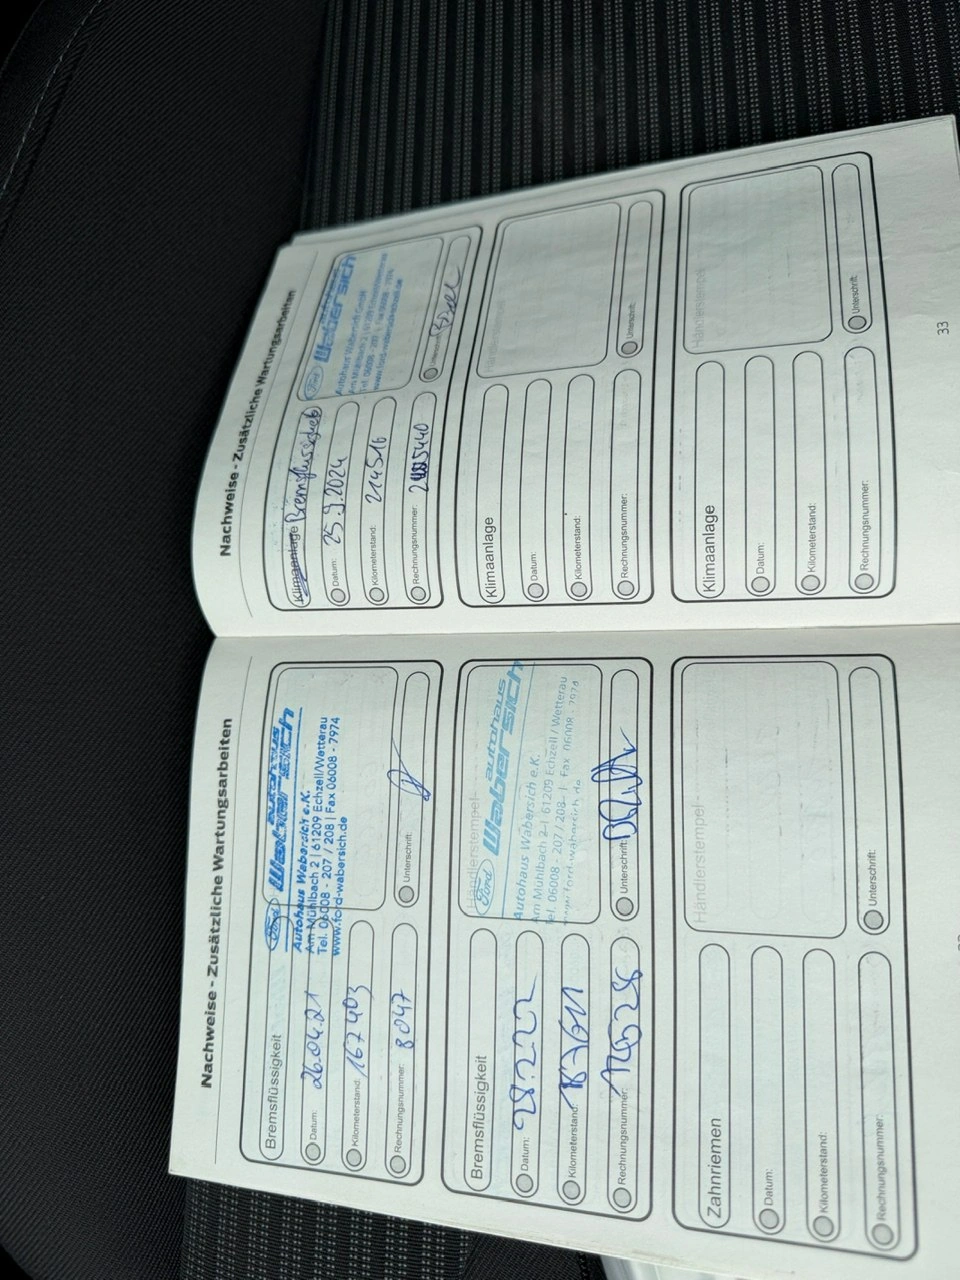 Nachweise - Zusätzliche Wartungsarbeiten
Bremsflüssigkeit
Datum: 26.04.21
Kilometerstand: 167403
Rechnungsnummer: 8047
Ford autohaus
Wabersich
Autohaus Wabersich e.K.
Am Mühlbach 2 | 61209 Echzell/Wetterau
Tel. 06008 - 207 / 208 | Fax 06008 - 7974
www.ford-wabersich.de
Unterschrift:
Bremsflüssigkeit
Datum: 28.2.22
Kilometerstand:
Rechnungsnummer:
Händlerstempel
Ford autohaus
Wabersich
Autohaus Wabersich e.K.
Am Mühlbach 2 | 61209 Echzell/Wetterau
Tel. 06008 - 207 / 208 | Fax 06008 - 7974
www.ford-wabersich.de
Unterschrift:
Zahnriemen
Datum:
Kilometerstand:
Rechnungsnummer:
Händlerstempel
Unterschrift:
Nachweise - Zusätzliche Wartungsarbeiten
Klimaanlage
Datum: 25.9.2024
Kilometerstand: 214516
Rechnungsnummer:
Ford
Wabersich
Autohaus Wabersich GmbH
Unterschrift:
Klimaanlage
Datum:
Kilometerstand:
Rechnungsnummer:
Händlerstempel
Unterschrift:
Klimaanlage
Datum:
Kilometerstand:
Rechnungsnummer:
Händlerstempel
Unterschrift:
33